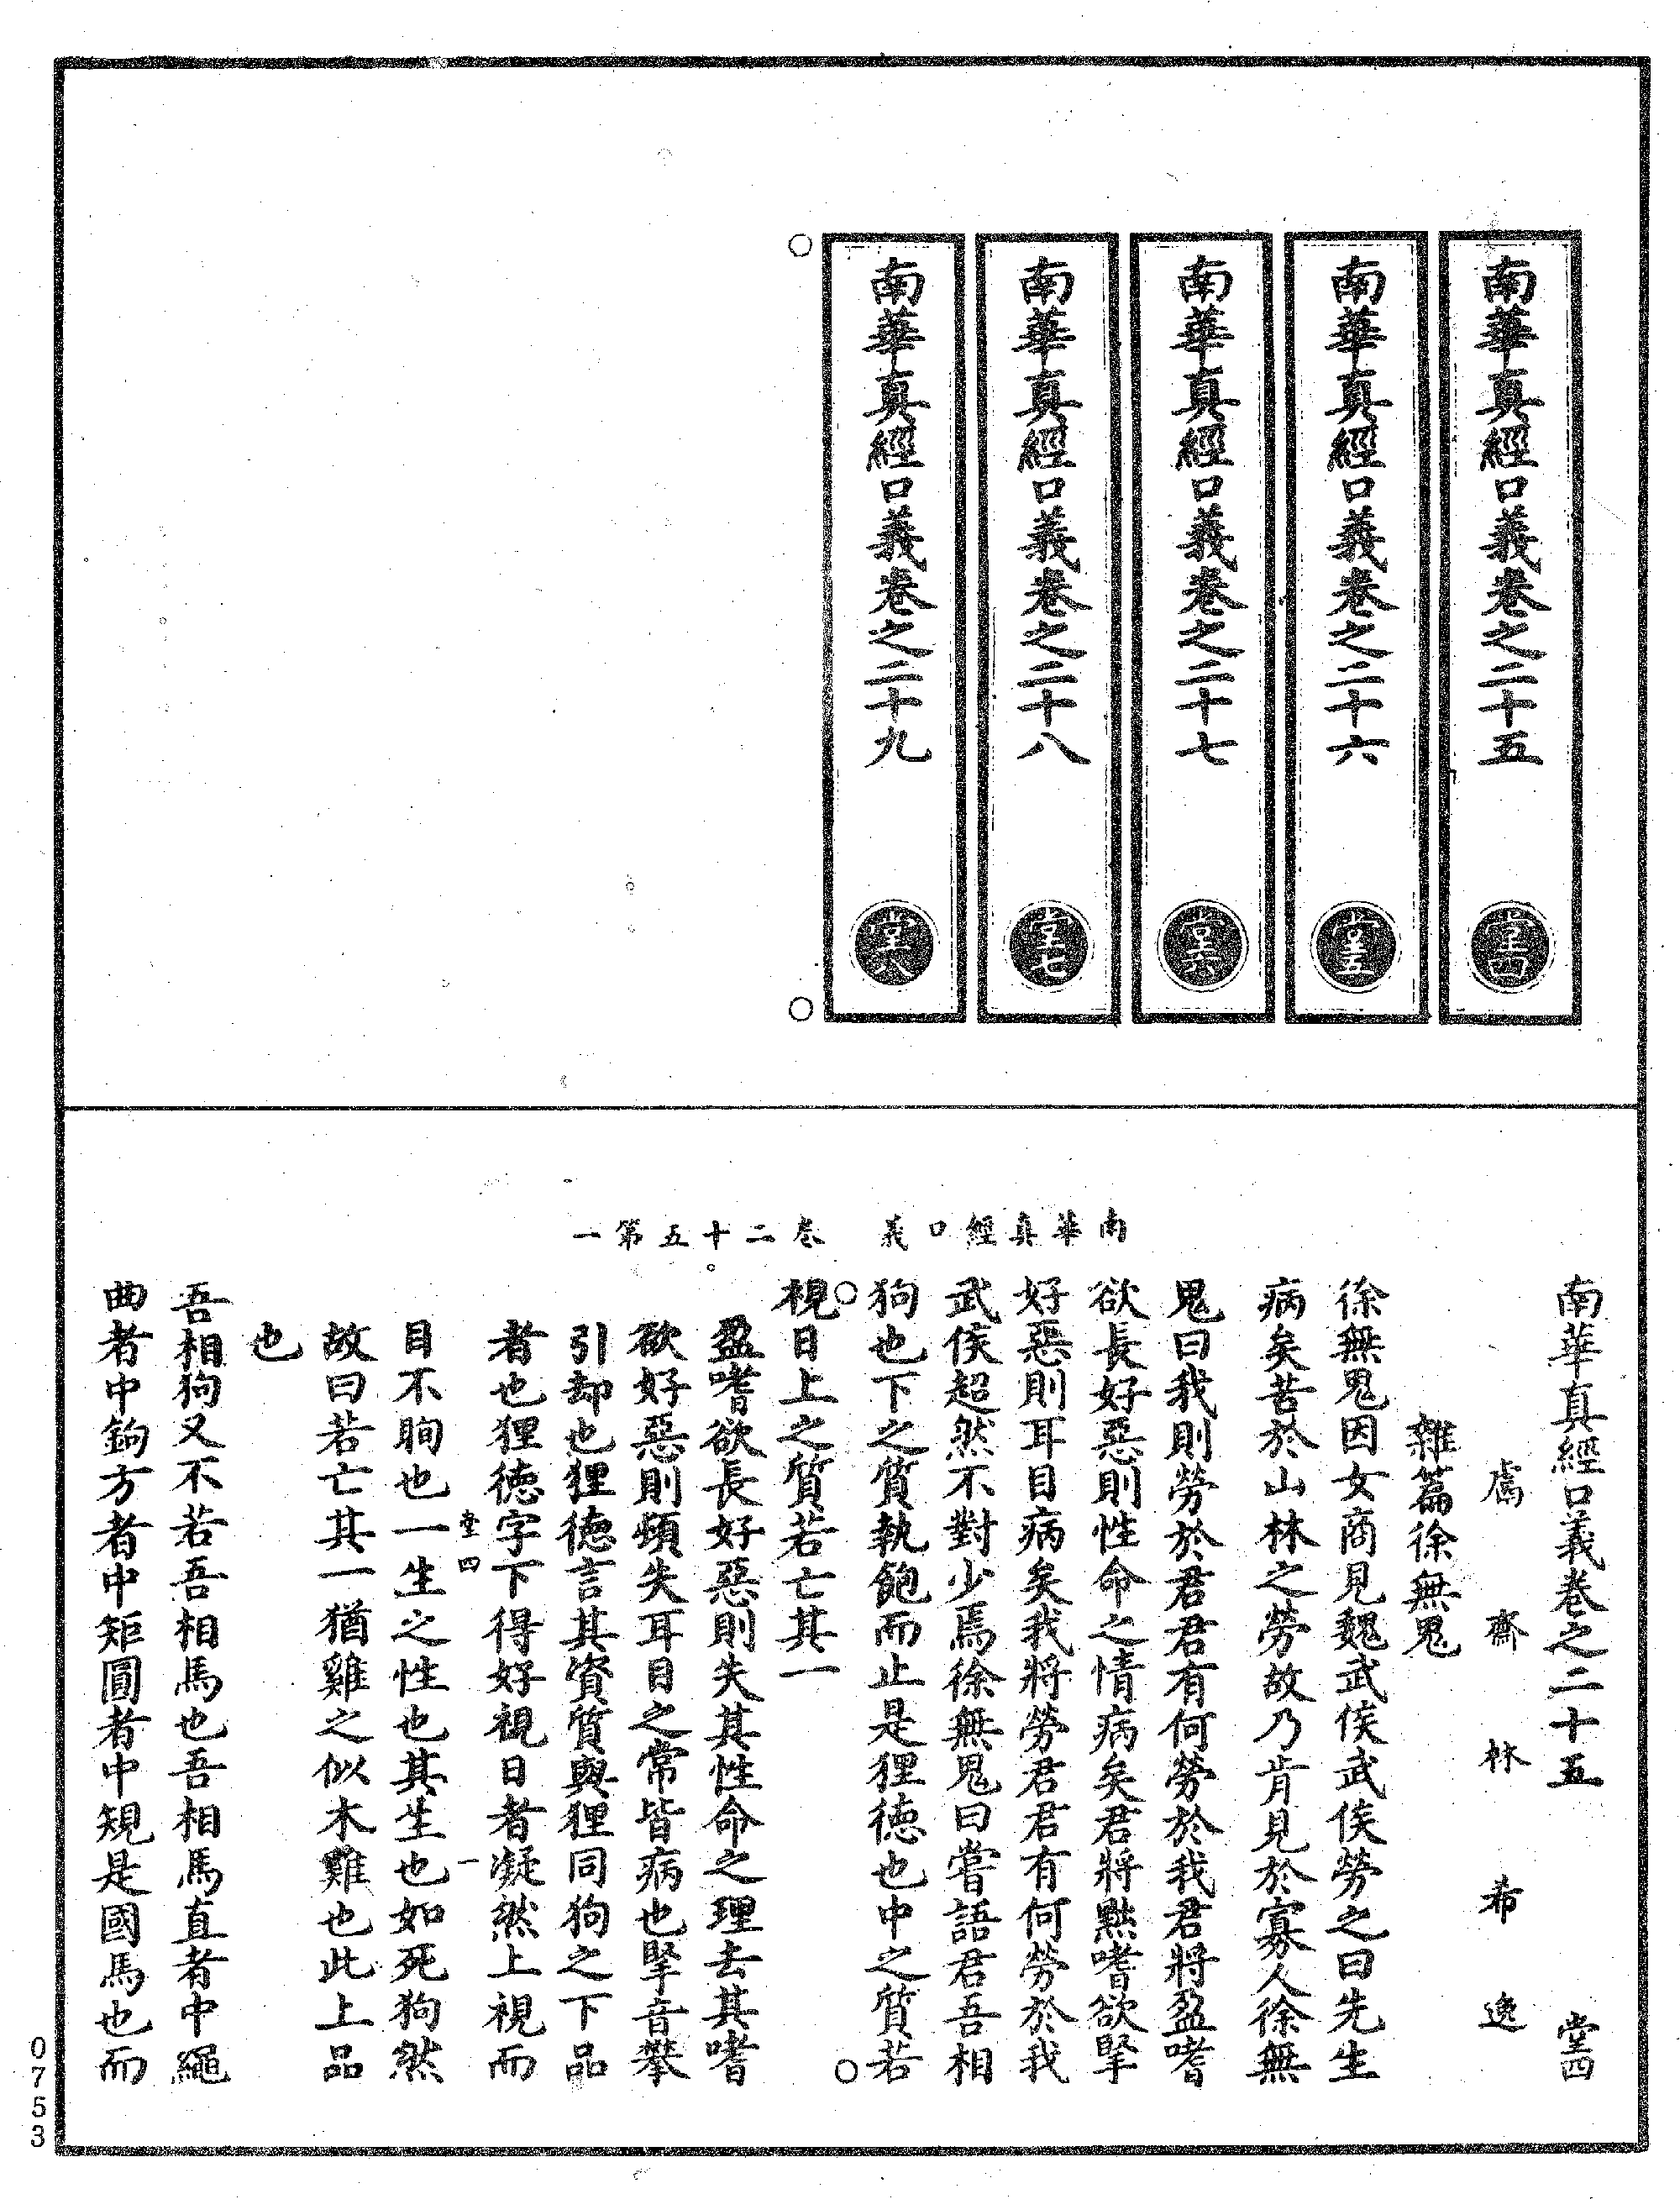 南華真經口義卷之二十五 堂四
南華真經口義卷之二十六 堂五
南華真經口義卷之二十七 堂六
南華真經口義卷之二十八 堂七
南華真經口義卷之二十九 堂八
南華真經口義 卷二十五第一
南華真經口義卷之二十五 堂四
鬳齋林希逸
雜篇徐無鬼
徐無鬼因女商見魏武侯武侯勞之曰先生
病矣苦於山林之勞故乃肯見於寡人徐無
鬼曰我則勞於君君有何勞於我君將盈嗜
欲長好惡則性命之情病矣君將黜嗜欲掔
好惡則耳目病矣我將勞君君有何勞於我
武侯超然不對少焉徐無鬼曰嘗語君吾相
狗也下之質執飽而止是狸德也中之質若
視日上之質若亡其一
盈嗜欲長好惡則失其性命之理去其嗜
欲好惡則頓失耳目之常皆病也掔音牽
引却也狸德言其資質與狸同狗之下品
者也狸德字下得好視日者凝然上視而
堂四 一
目不眴也一生之性也其生也如死狗然
故曰若亡其一猶雞之似木雞也此上品
也
吾相狗又不若吾相馬也吾相馬直者中繩
曲者中鉤方者中矩圓者中規是國馬也而
0753